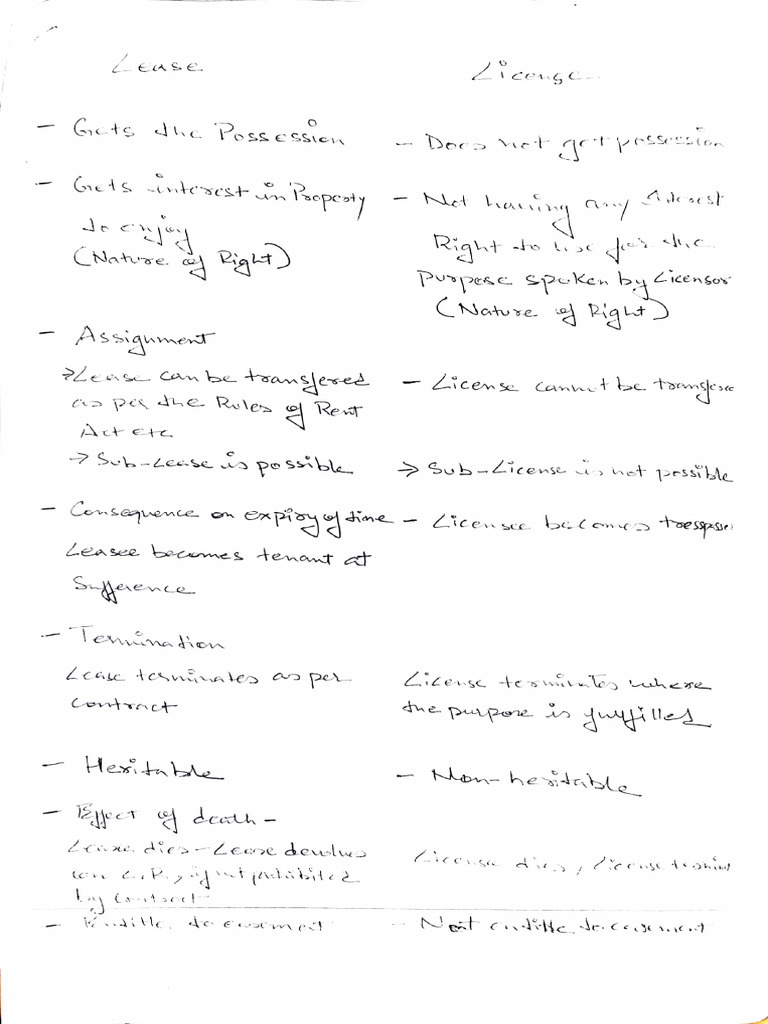 Lease
License
- Gets the Possession
- Does not get possession
- Gets interest in Property
to enjoy
(Nature of Right)
- Not having any interest
Right to use for the
purpose spoken by Licensor
(Nature of Right)
- Assignment
→ Lease can be transfered
as per the Rules of Rent
Act etc
- License cannot be transfere
→ Sub-Lease is possible
→ Sub-License is not possible
- Consequence on expiry of time
Leasee becomes tenant at
Sufference
- Licensee becomes tresspasser
- Termination
Lease terminates as per
contract
License terminates where
the purpose is fulfilled
- Heritable
- Non-heritable
- Effect of death -
Leasee dies - Lease devolves
on L.R., if not prohibited
by contract
License dies, License
- to easement
- Not entitle to easement